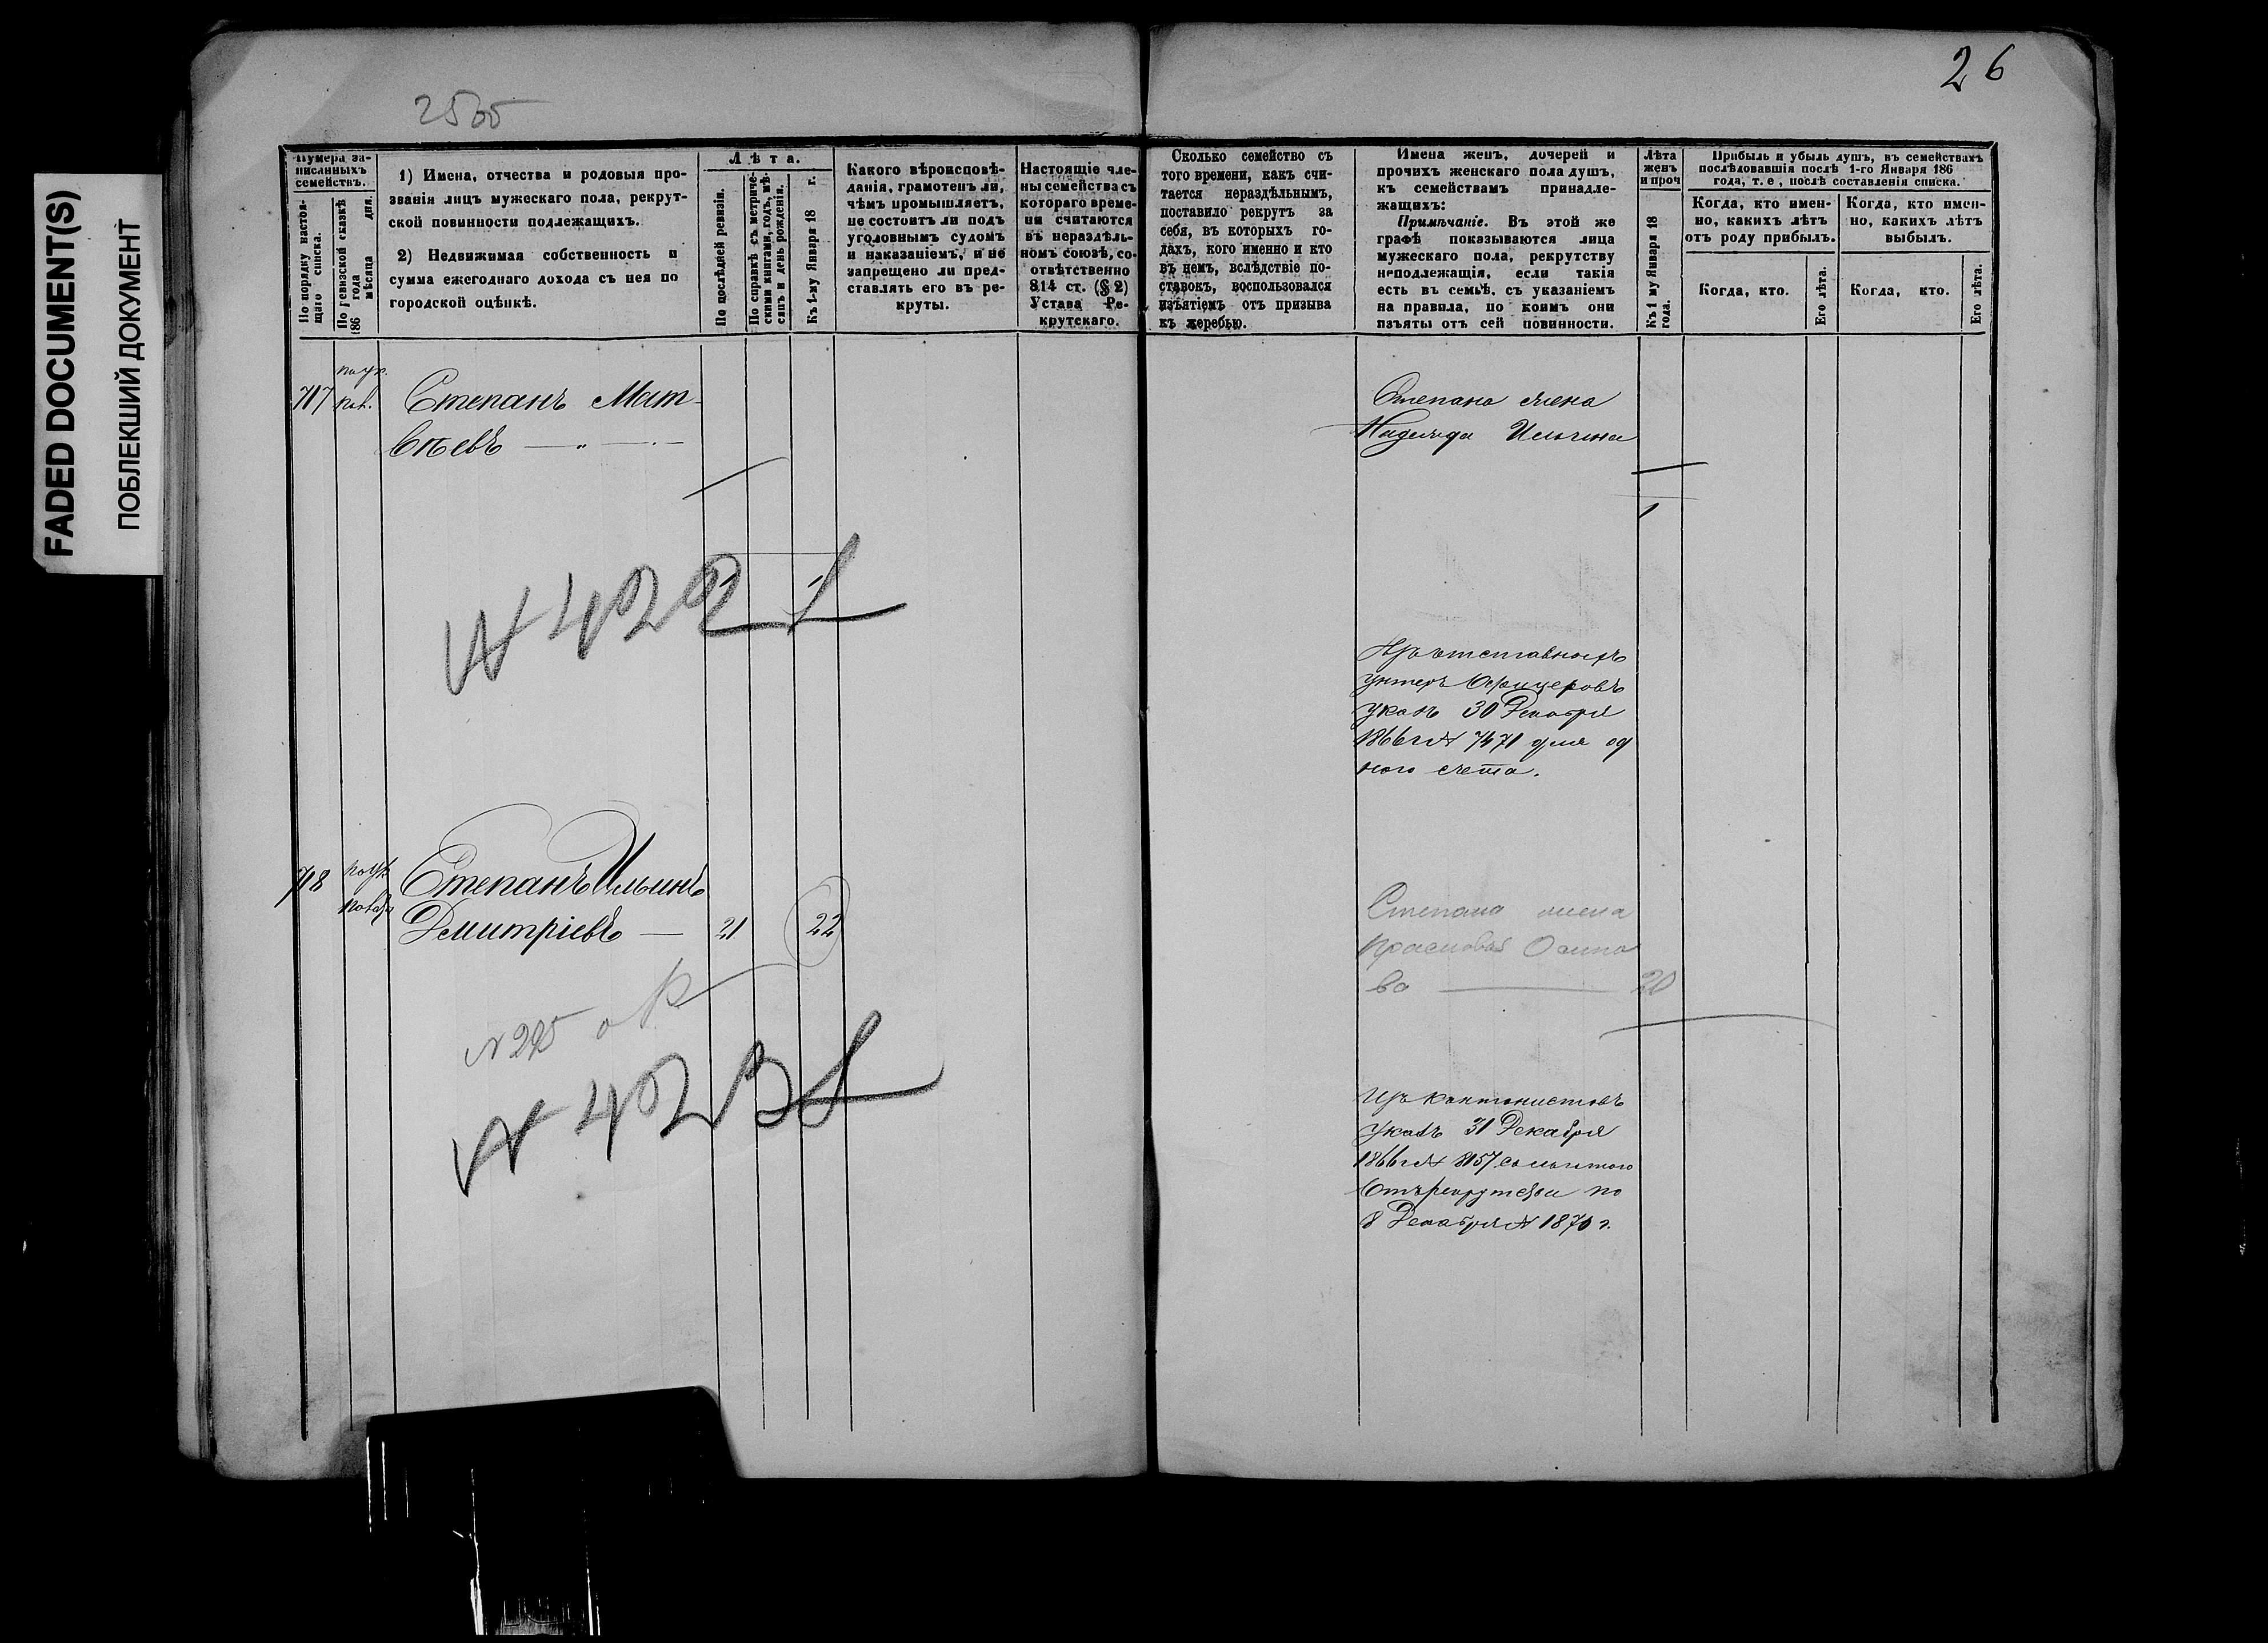 FADED DOCUMENT(S)
ПОБЛЕКШИЙ ДОКУМЕНТ
26
Нумера за-
писанныхъ
семействъ.
По порядку настоя-
щаго списка.
По ревизской сказкѣ
186 года
мѣсяца дня.
1) Имена, отчества и родовыя про-
званія лицъ мужескаго пола, рекрут-
ской повинности подлежащихъ.
2) Недвижимая собственность и
сумма ежегоднаго дохода съ нея по
городской оцѣнкѣ.
Лѣта.
По послѣдней ревизіи.
По справкѣ съ метриче-
скими книгами, годъ, мѣ-
сяцъ и день рожденія.
Къ 1-му Января 18 г.
Какого вѣроисповѣ-
данія, грамотенъ ли,
чѣмъ промышляетъ,
не состоитъ ли подъ
уголовнымъ судомъ
и наказаніемъ, и не
запрещено ли пред-
ставлять его въ ре-
круты.
Настоящіе чле-
ны семейства съ
котораго време-
ни считаются
въ нераздѣль-
номъ союзѣ, со-
отвѣтственно
814 ст. (§ 2)
Устава Ре-
крутскаго.
Сколько семейство съ
того времени, какъ счи-
тается нераздѣльнымъ,
поставило рекрутъ за
себя, въ которыхъ го-
дахъ, кого именно и кто
въ немъ, вслѣдствіе по-
ставокъ, воспользовался
изъятіемъ отъ призыва
къ жеребью.
Имена женъ, дочерей и
прочихъ женскаго пола душъ,
къ семействамъ принадле-
жащихъ:
Примѣчаніе. Въ этой же
графѣ показываются лица
мужескаго пола, рекрутству
неподлежащія, если такія
есть въ семьѣ, съ указаніемъ
на правила, по коимъ они
изъяты отъ сей повинности.
Лѣта
женъ
и проч
Къ 1 му Января 18
года.
Прибыль и убыль душъ, въ семействахъ
послѣдовавшія послѣ 1-го Января 186
года, т. е, послѣ составленія списка.
Когда, кто имен-
но, какихъ лѣтъ
отъ роду прибылъ.
Когда, кто имен-
но, какихъ лѣтъ
выбылъ.
Когда, кто.
Его лѣта.
Когда, кто.
Его лѣта.
717
Степанъ Мат-
вѣевъ
Степана жена
Надежда Ильина
1
1 1
N 4222
Изъ отставныхъ
унтеръ Офицеровъ
указъ 30 Декабря
1866 г N 7471 для од
ного счета.
718
Степанъ Ильинъ
Дмитріевъ — 21 22
Степана жена
Прасковья Осипо
ва — 20
N 4232
Изъ кантонистовъ
Указъ 31 Декабря
1866 г N 8157
Отъ рекрутства по
8 Декабря 1870 г.